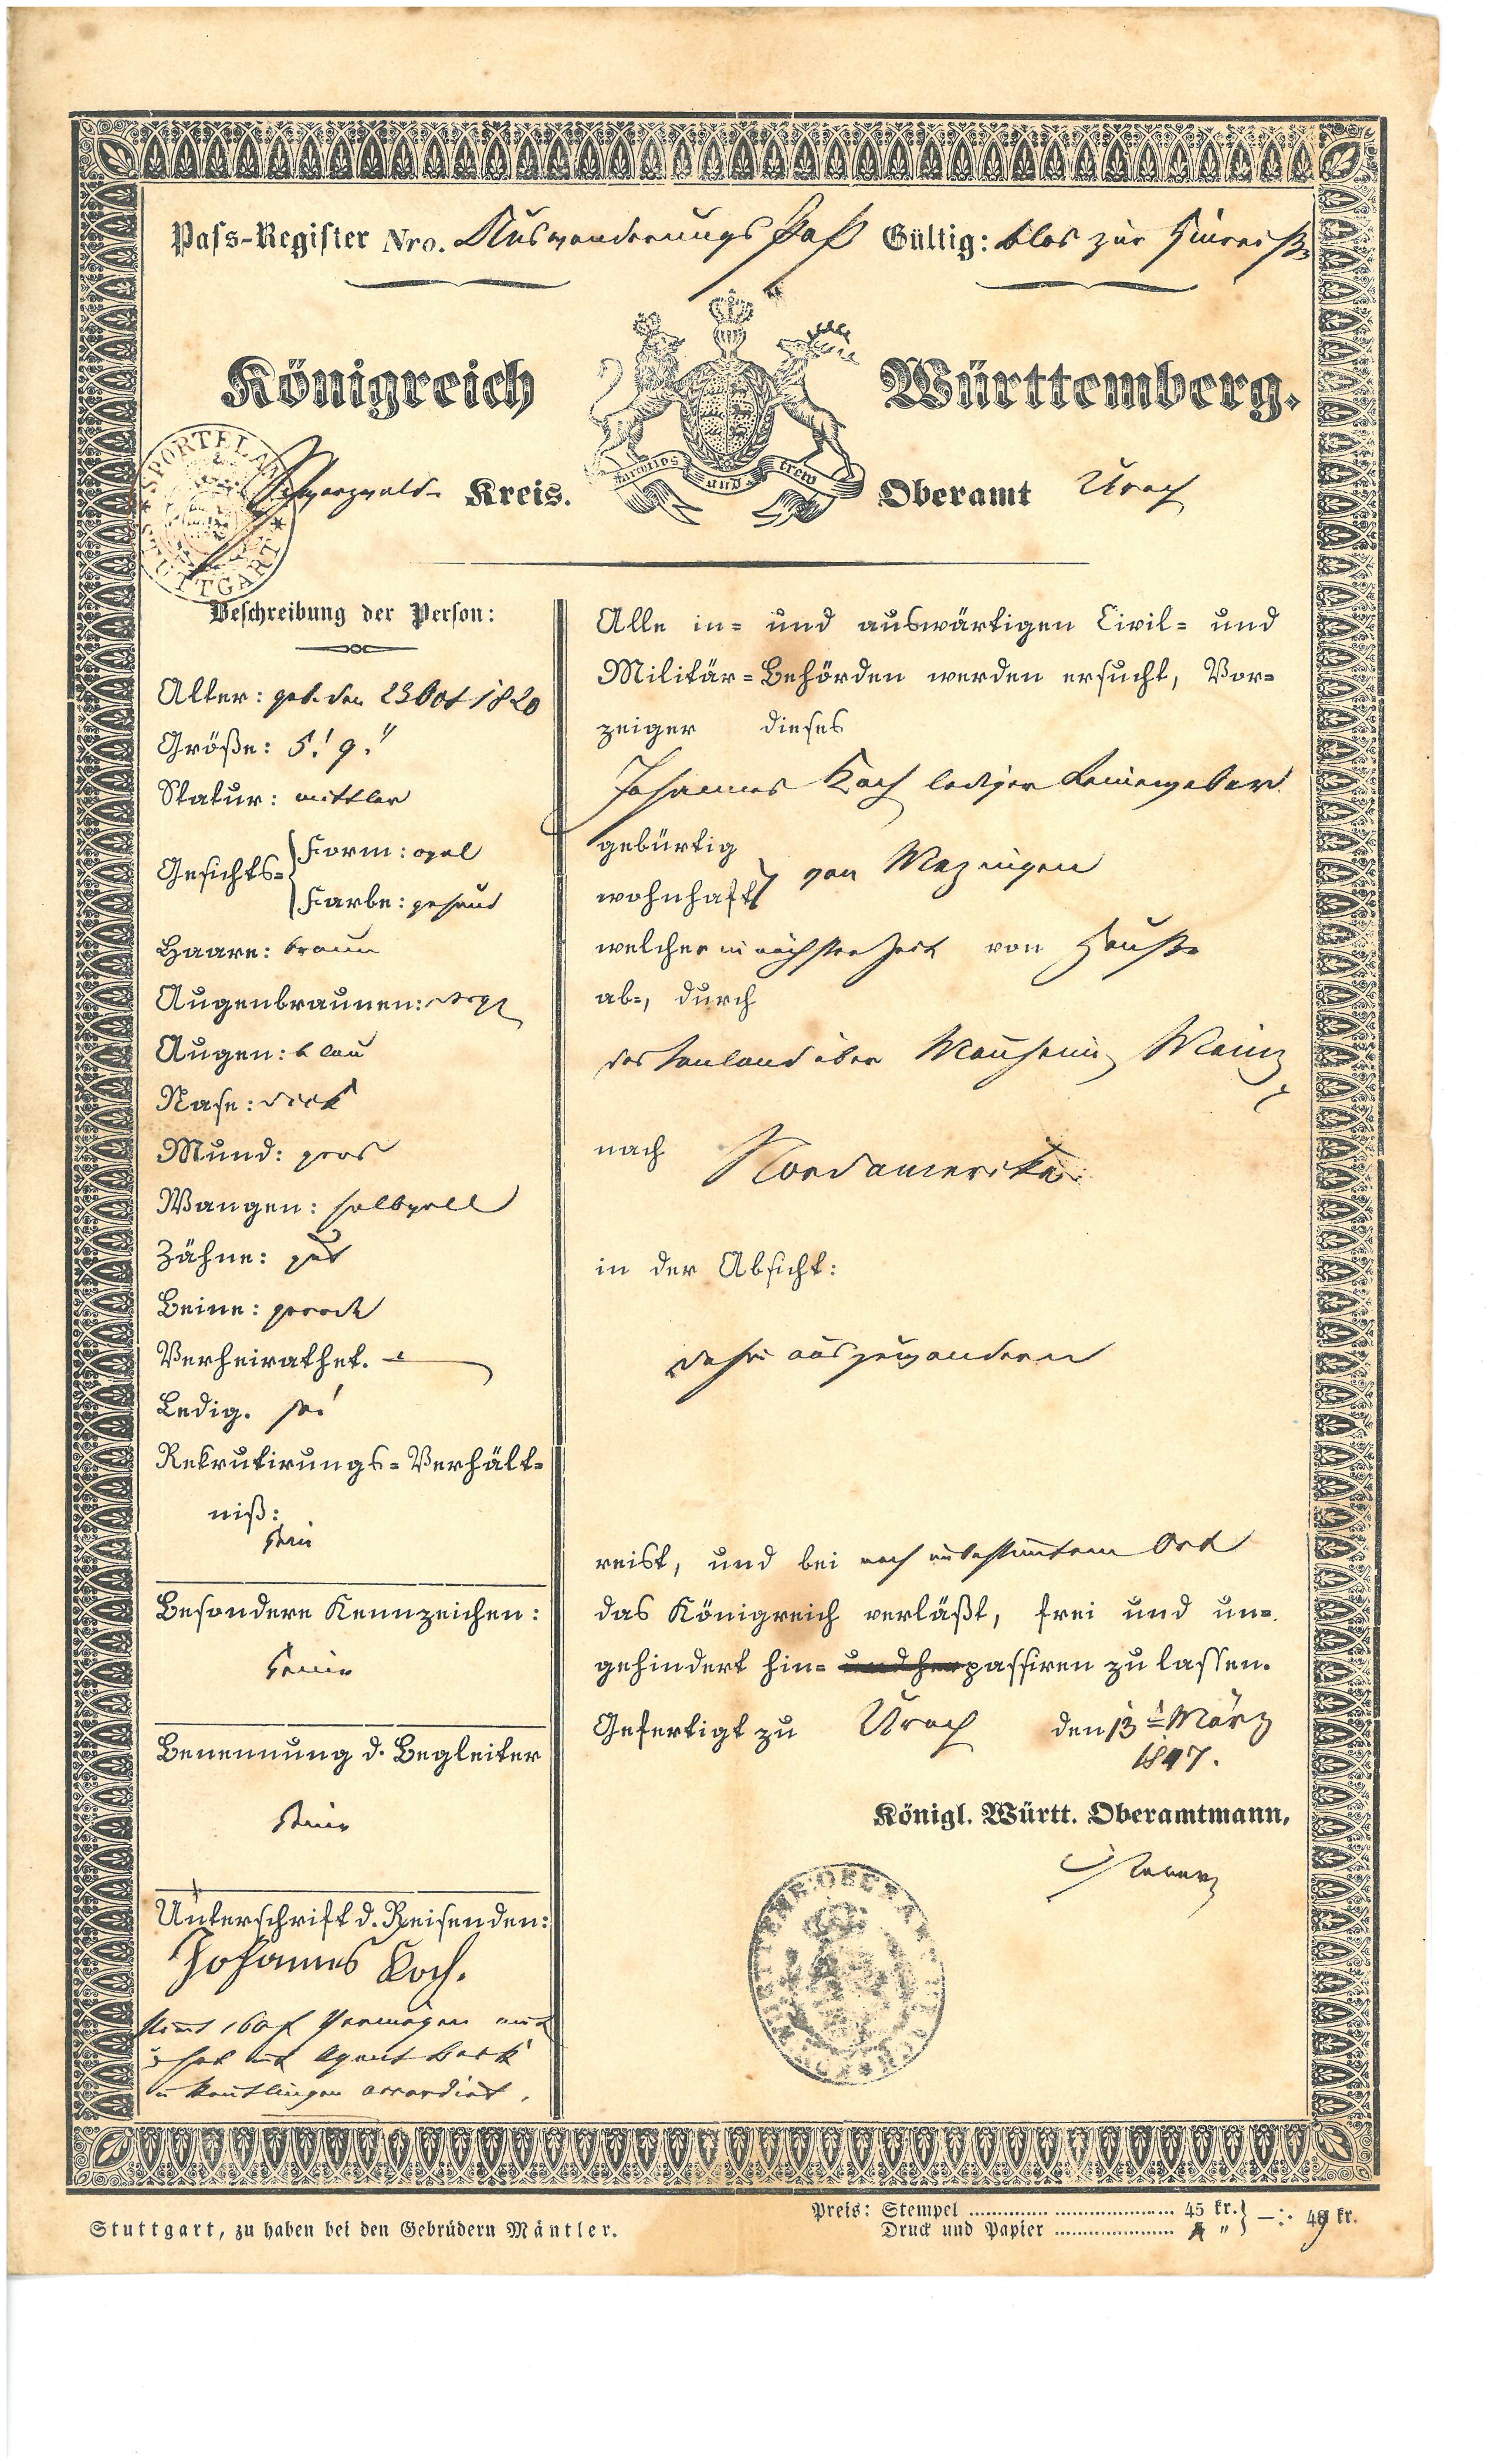 Pass-Register Nro. Auswanderungs Paß Gültig: blos zur Hinreise
Königreich Württemberg.
furchtlos und trew
SPORTELAMT STUTTGART
Schwarzwald- Kreis. Oberamt Urach
Beschreibung der Person:
Alter: geb. den 23 Oct 1820
Größe: 5.' 9.''
Statur: mittler
Gesichts-
Form: oval
Farbe: gesund
Haare: braun
Augenbraunen:
Augen: blau
Nase: dick
Mund: gros
Wangen: halbvoll
Zähne: gut
Beine: gerade
Verheirathet. —
Ledig.
Rekrutirungs-Verhält-
niß:
Besondere Kennzeichen:
keine
Benennung d. Begleiter
keine
Unterschrift d. Reisenden:
Johannes Koch.
nimt 160 f Vermögen mit
hat mit Agent
in Reutlingen accordirt.
Alle in- und auswärtigen Civil- und
Militär-Behörden werden ersucht, Vor-
zeiger dieses
Johannes Koch lediger Leineweber
gebürtig
wohnhaft
von Mezingen
welcher in nächster Zeit von Hause
ab-, durch
das Innland über Mannheim Mainz
nach Nordamerika
in der Absicht:
dahin auszuwandern
reist, und bei noch unbestimmtem Ort
das Königreich verläßt, frei und un-
gehindert hin- und her passiren zu lassen.
Gefertigt zu Urach den 13 März
1847.
Königl. Württ. Oberamtmann,
Stuttgart, zu haben bei den Gebrüdern Mäntler.
Preis: Stempel .......... 45 kr.
Druck und Papier .......... 4 "
—:· 49 kr.